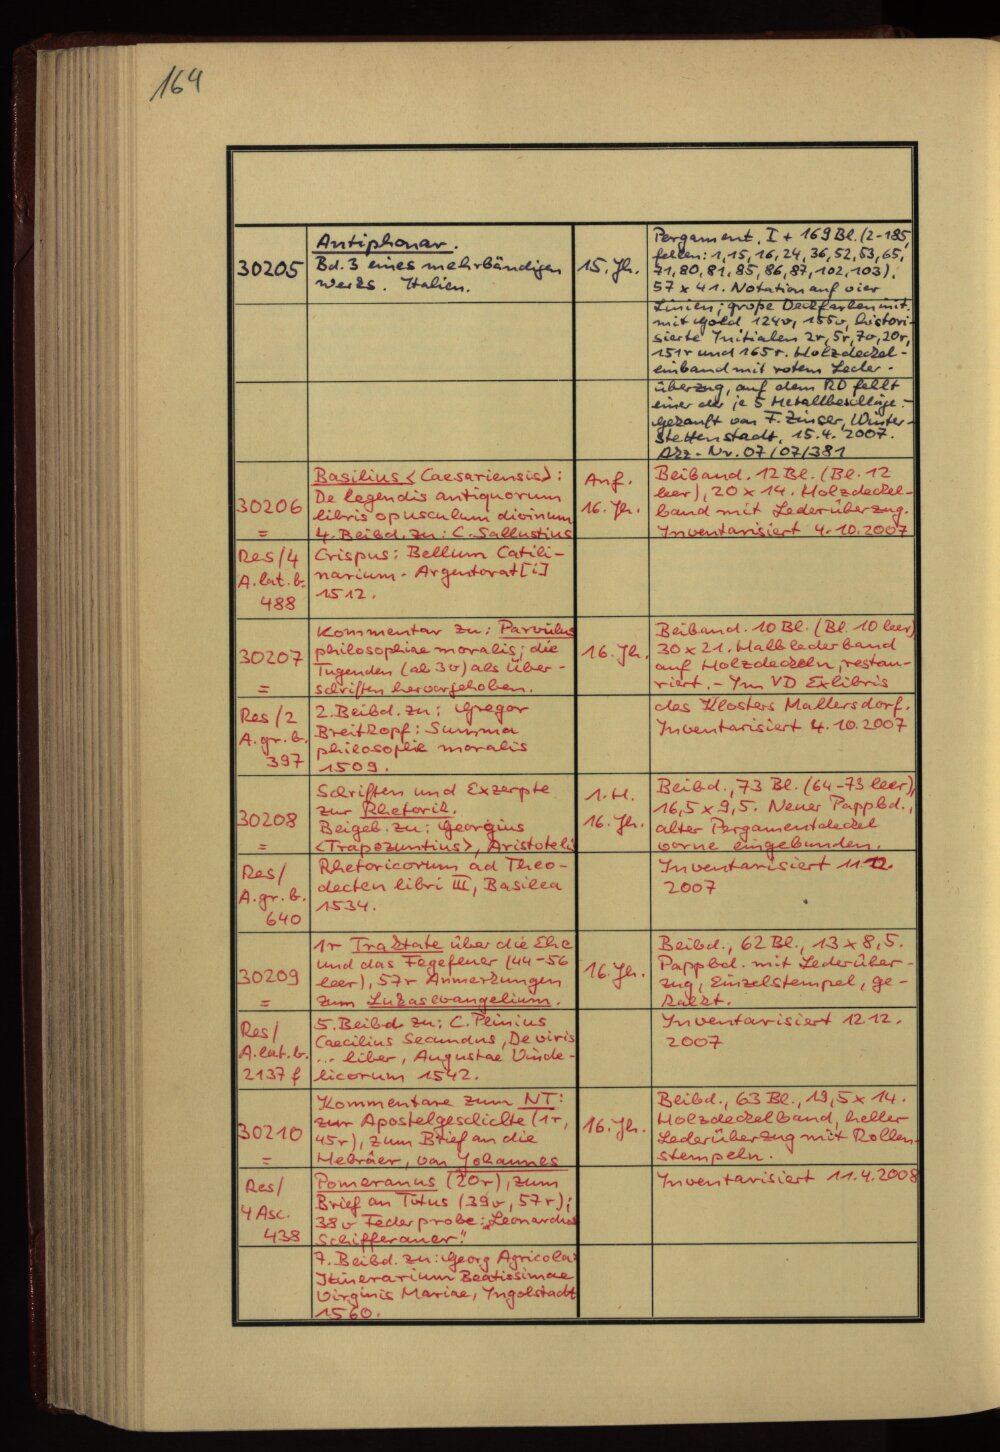 164
Antiphonar.
30205 Bd. 3 eines mehrbändigen
Werks. Italien.
15. Jh.
Pergament, I + 169 Bl. (2-185,
fehlen: 1, 15, 16, 24, 36, 52, 53, 65,
71, 80, 81, 85, 86, 87, 102, 103).
57 x 41. Notation auf vier
Linien; große Deckfarbeninit.
mit Gold 124v, 155v, histori-
sierte Initialen 2r, 5r, 7v, 20r,
151r und 165r. Holzdeckel-
einband mit rotem Leder-
überzug, auf dem RD fehlt
einer der je 5 Metallbeschläge. -
Gekauft von F. Zinser, Winter-
stettenstadt, 15.4.2007.
Akz.-Nr. 07/07/381
30206
=
Res/4
A.lat.b.
488
Basilius <Caesariensis>:
De legendis antiquorum
libris opusculum divinum
4. Beibd. zu: C. Sallustius
Crispus: Bellum Catili-
narium. Argentorat[i]
1512.
Anf.
16. Jh.
Beiband. 12 Bl. (Bl. 12
leer), 20 x 14. Holzdeckel-
band mit Lederüberzug.
Inventarisiert 4.10.2007
30207
=
Res/2
A.gr.b.
397
Kommentar zu: Parvulus
philosophiae moralis; die
Tugenden (ab 3v) als Über-
schriften hervorgehoben.
2. Beibd. zu: Gregor
Breitkopf: Summa
philosophie moralis
1509.
16. Jh.
Beiband. 10 Bl. (Bl. 10 leer)
30 x 21. Halblederband
auf Holzdeckeln, restau-
riert. - Im VD Exlibris
des Klosters Mallersdorf.
Inventarisiert 4.10.2007
30208
=
Res/
A.gr.b.
640
Schriften und Exzerpte
zur Rhetorik.
Beigeb. zu: Georgius
<Trapezuntius>, Aristotelis
Rhetoricorum ad Theo-
decten libri III, Basilea
1534.
1. H.
16. Jh.
Beibd., 73 Bl. (64-73 leer),
16,5 x 9,5. Neuer Pappbd.,
alter Pergamentdeckel
vorne eingebunden.
Inventarisiert 11.12.
2007
30209
=
Res/
A.lat.b.
2137 f
1r Traktate über die Ehe
und das Fegefeuer (44-56
leer), 57r Anmerkungen
zum Lukasevangelium.
5. Beibd. zu: C. Plinius
Caecilius Secundus, De viris
... liber, Augustae Vinde-
licorum 1542.
16. Jh.
Beibd., 62 Bl., 13 x 8,5.
Pappbd. mit Lederüber-
zug, Einzelstempel, ge-
kalkt.
Inventarisiert 12.12.
2007
30210
=
Res/
4 Asc.
438
Kommentare zum NT:
zur Apostelgeschichte (1r,
45r), zum Brief an die
Hebräer, von Johannes
Pomeranus (20r), zum
Brief an Titus (39v, 57r);
38v Federprobe: „Leonardus
Schifferauer".
7. Beibd. zu: Georg Agricola:
Itinerarium Beatissimae
Virginis Mariae, Ingolstadt
1560.
16. Jh.
Beibd., 63 Bl., 19,5 x 14.
Holzdeckelband, heller
Lederüberzug mit Rollen-
stempeln.
Inventarisiert 11.4.2008